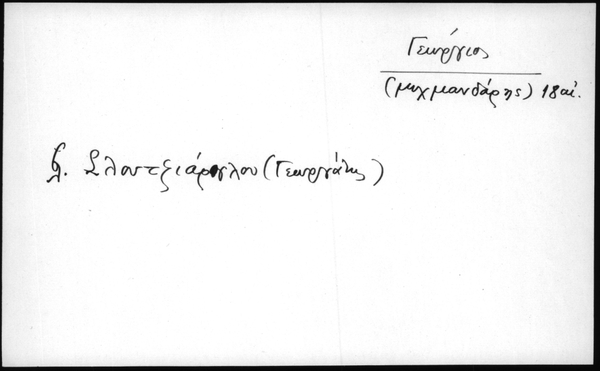 Γεώργιος
(μιχμανδάρης) 18 αἰ.
βλ. Σλουτζιάρογλου (Γεωργάκης)